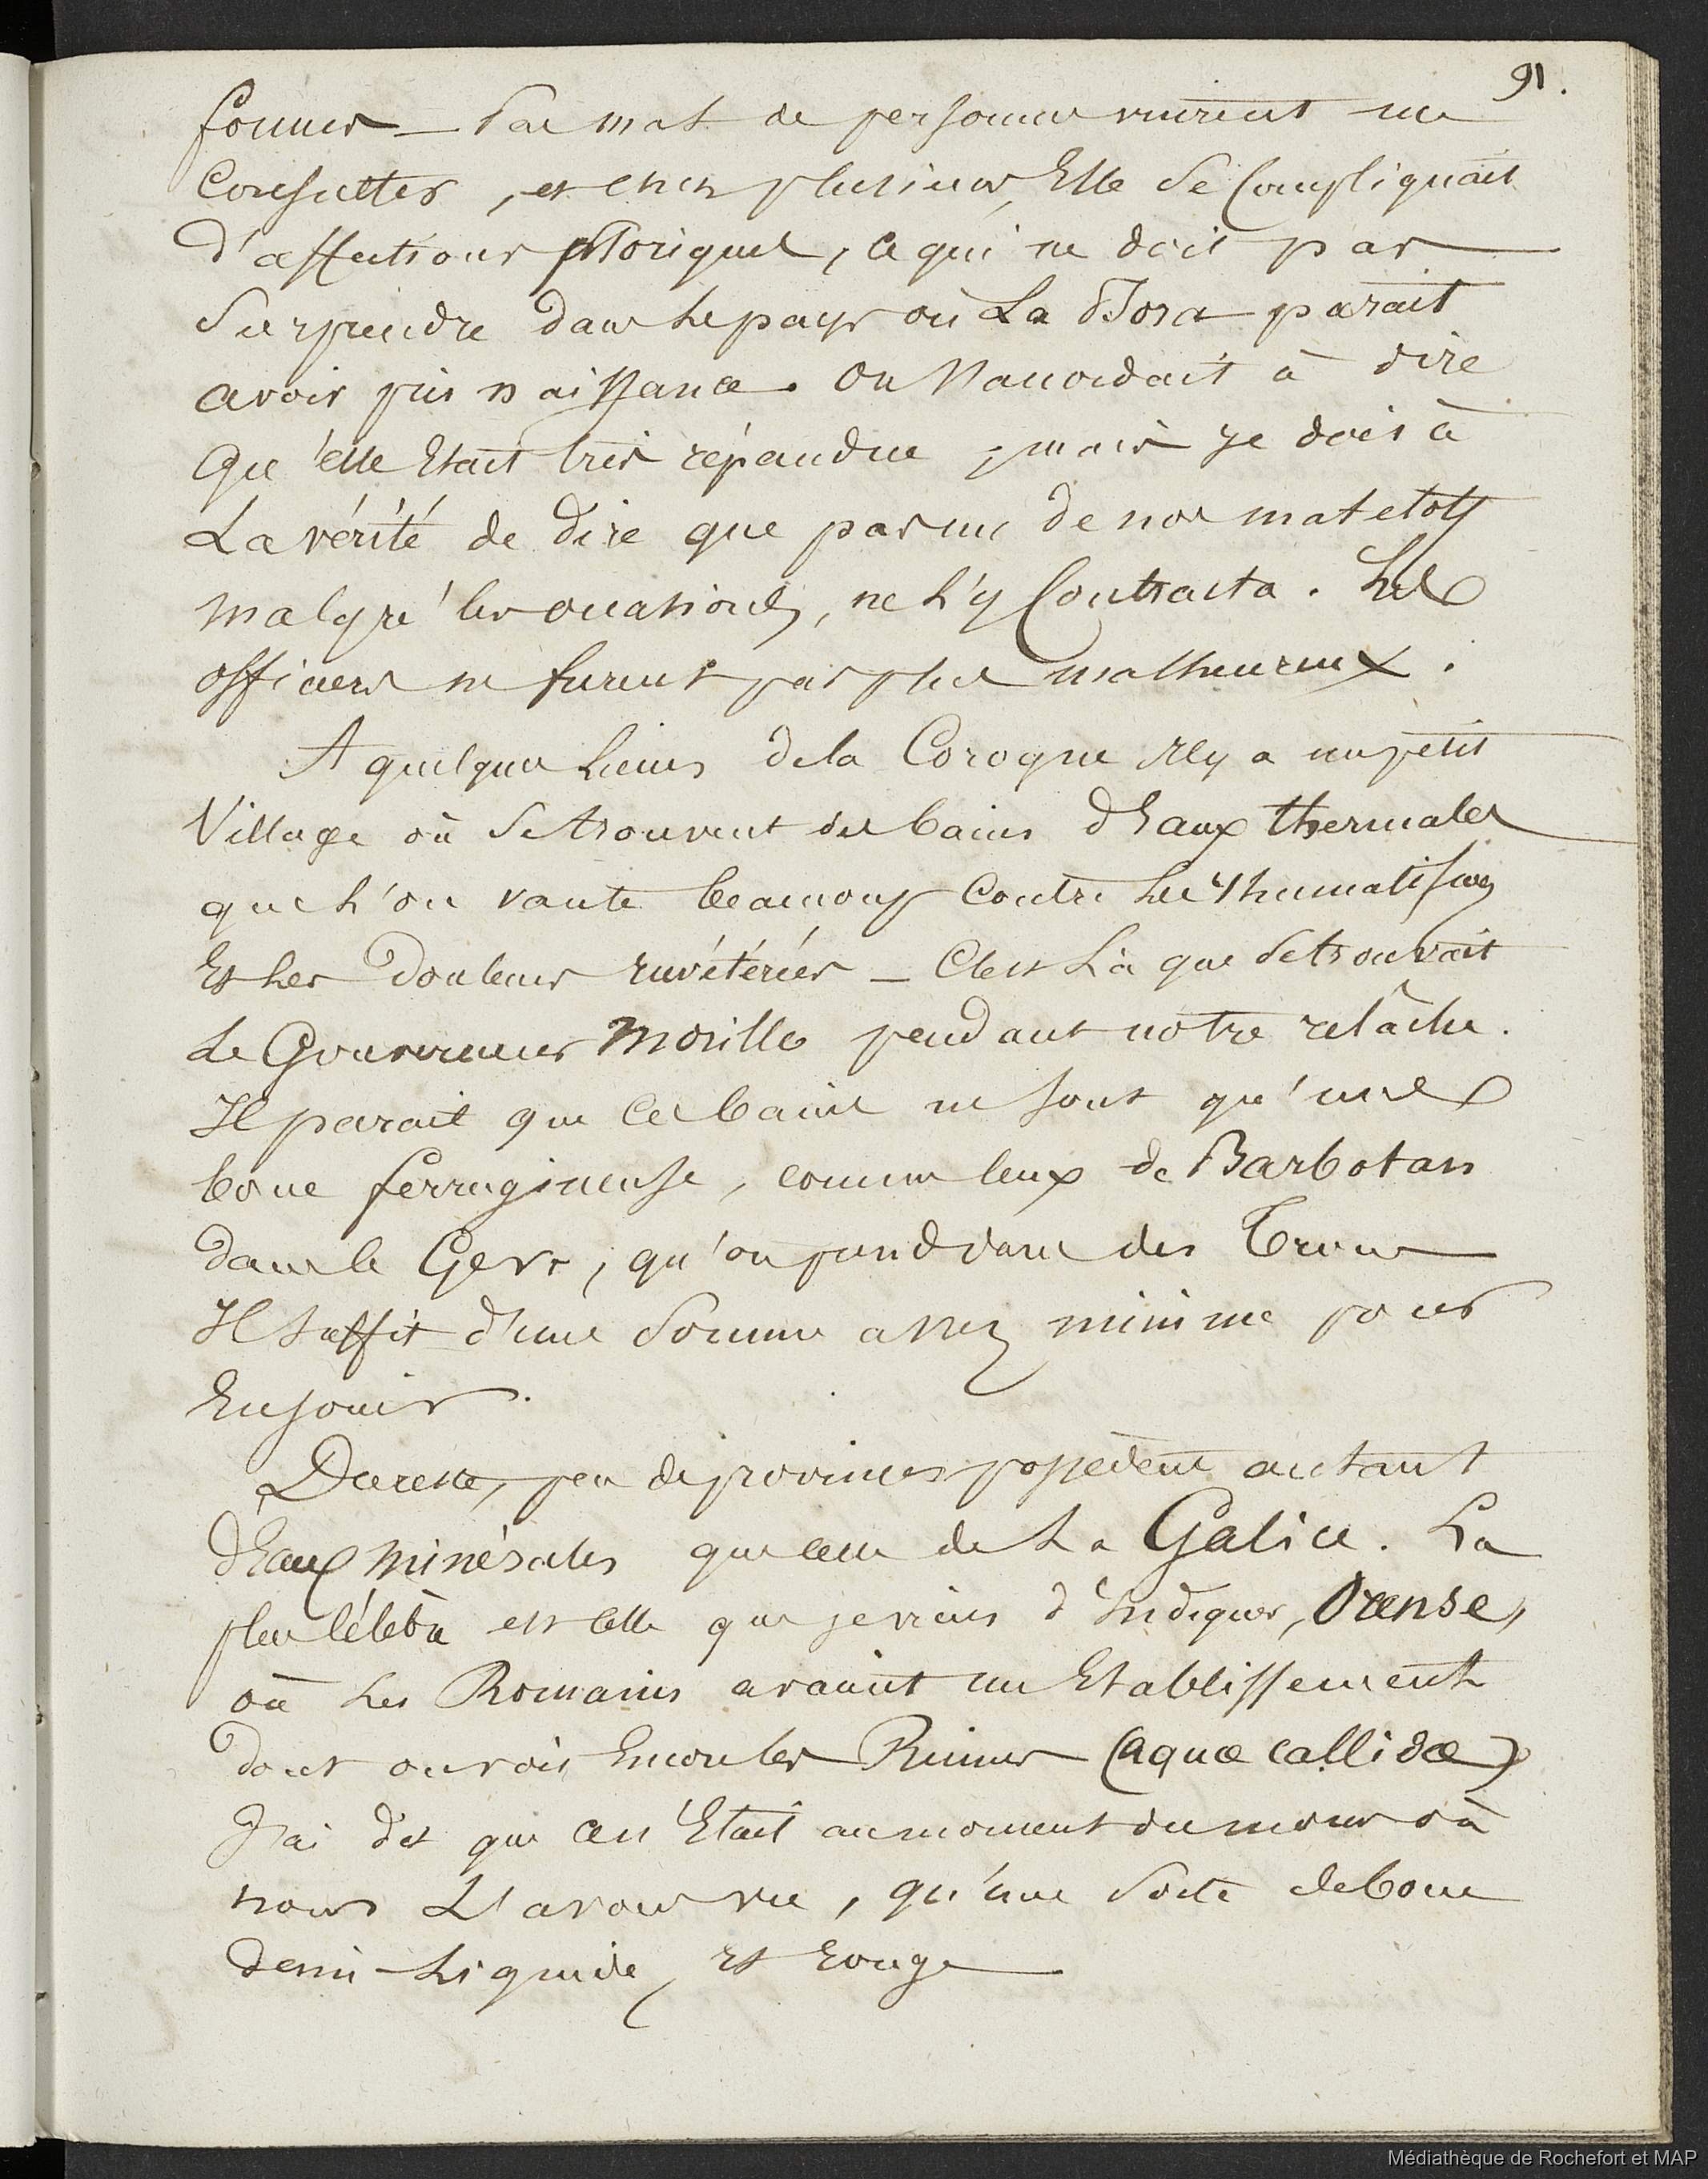 91.
formes — Pas mal de personnes vinrent me
Consulter, et chez plusieurs, Elle se Compliquait
d'affections psoriques, ce qui ne doit pas
Surprendre dans le pays où La Psora parait
avoir pris naissance. On s'accordait à dire
qu'elle Etait très répandue, mais je dois à
La vérité de dire que pas un de nos matelots
malgré les occasions, ne L'y Contracta. Les
officiers ne furent pas plus malheureux.
A quelques Lieues de la Corogne Il y a un petit
Village où se trouvent des bains d'Eaux thermales
que L'on vante beaucoup Contre Les rhumatismes
Et Les Douleurs invétérées — C'est Là que se trouvait
Le Gouverneur Morillo pendant notre relâche.
Il parait que Ces bains ne sont qu'une
boue ferrugineuse, comme Ceux de Barbotan
dans le Gers, qu'on prend dans des trous
Il Suffit d'une Somme assez minime pour
En jouir.
Du reste, peu de provinces possèdent autant
d'Eaux minérales que celle de La Galice. La
plus Célèbre est Celle que je viens d'Indiquer, Orense,
où Les Romains avaient un Etablissement
dont on voit Encore les Ruines (aquæ callidæ)
J'ai dit que ce n'Etait au moment du moins où
nous L'avons vue, qu'une Sorte de boue
demi-Liquide, Et rouge
Médiathèque de Rochefort et MAP